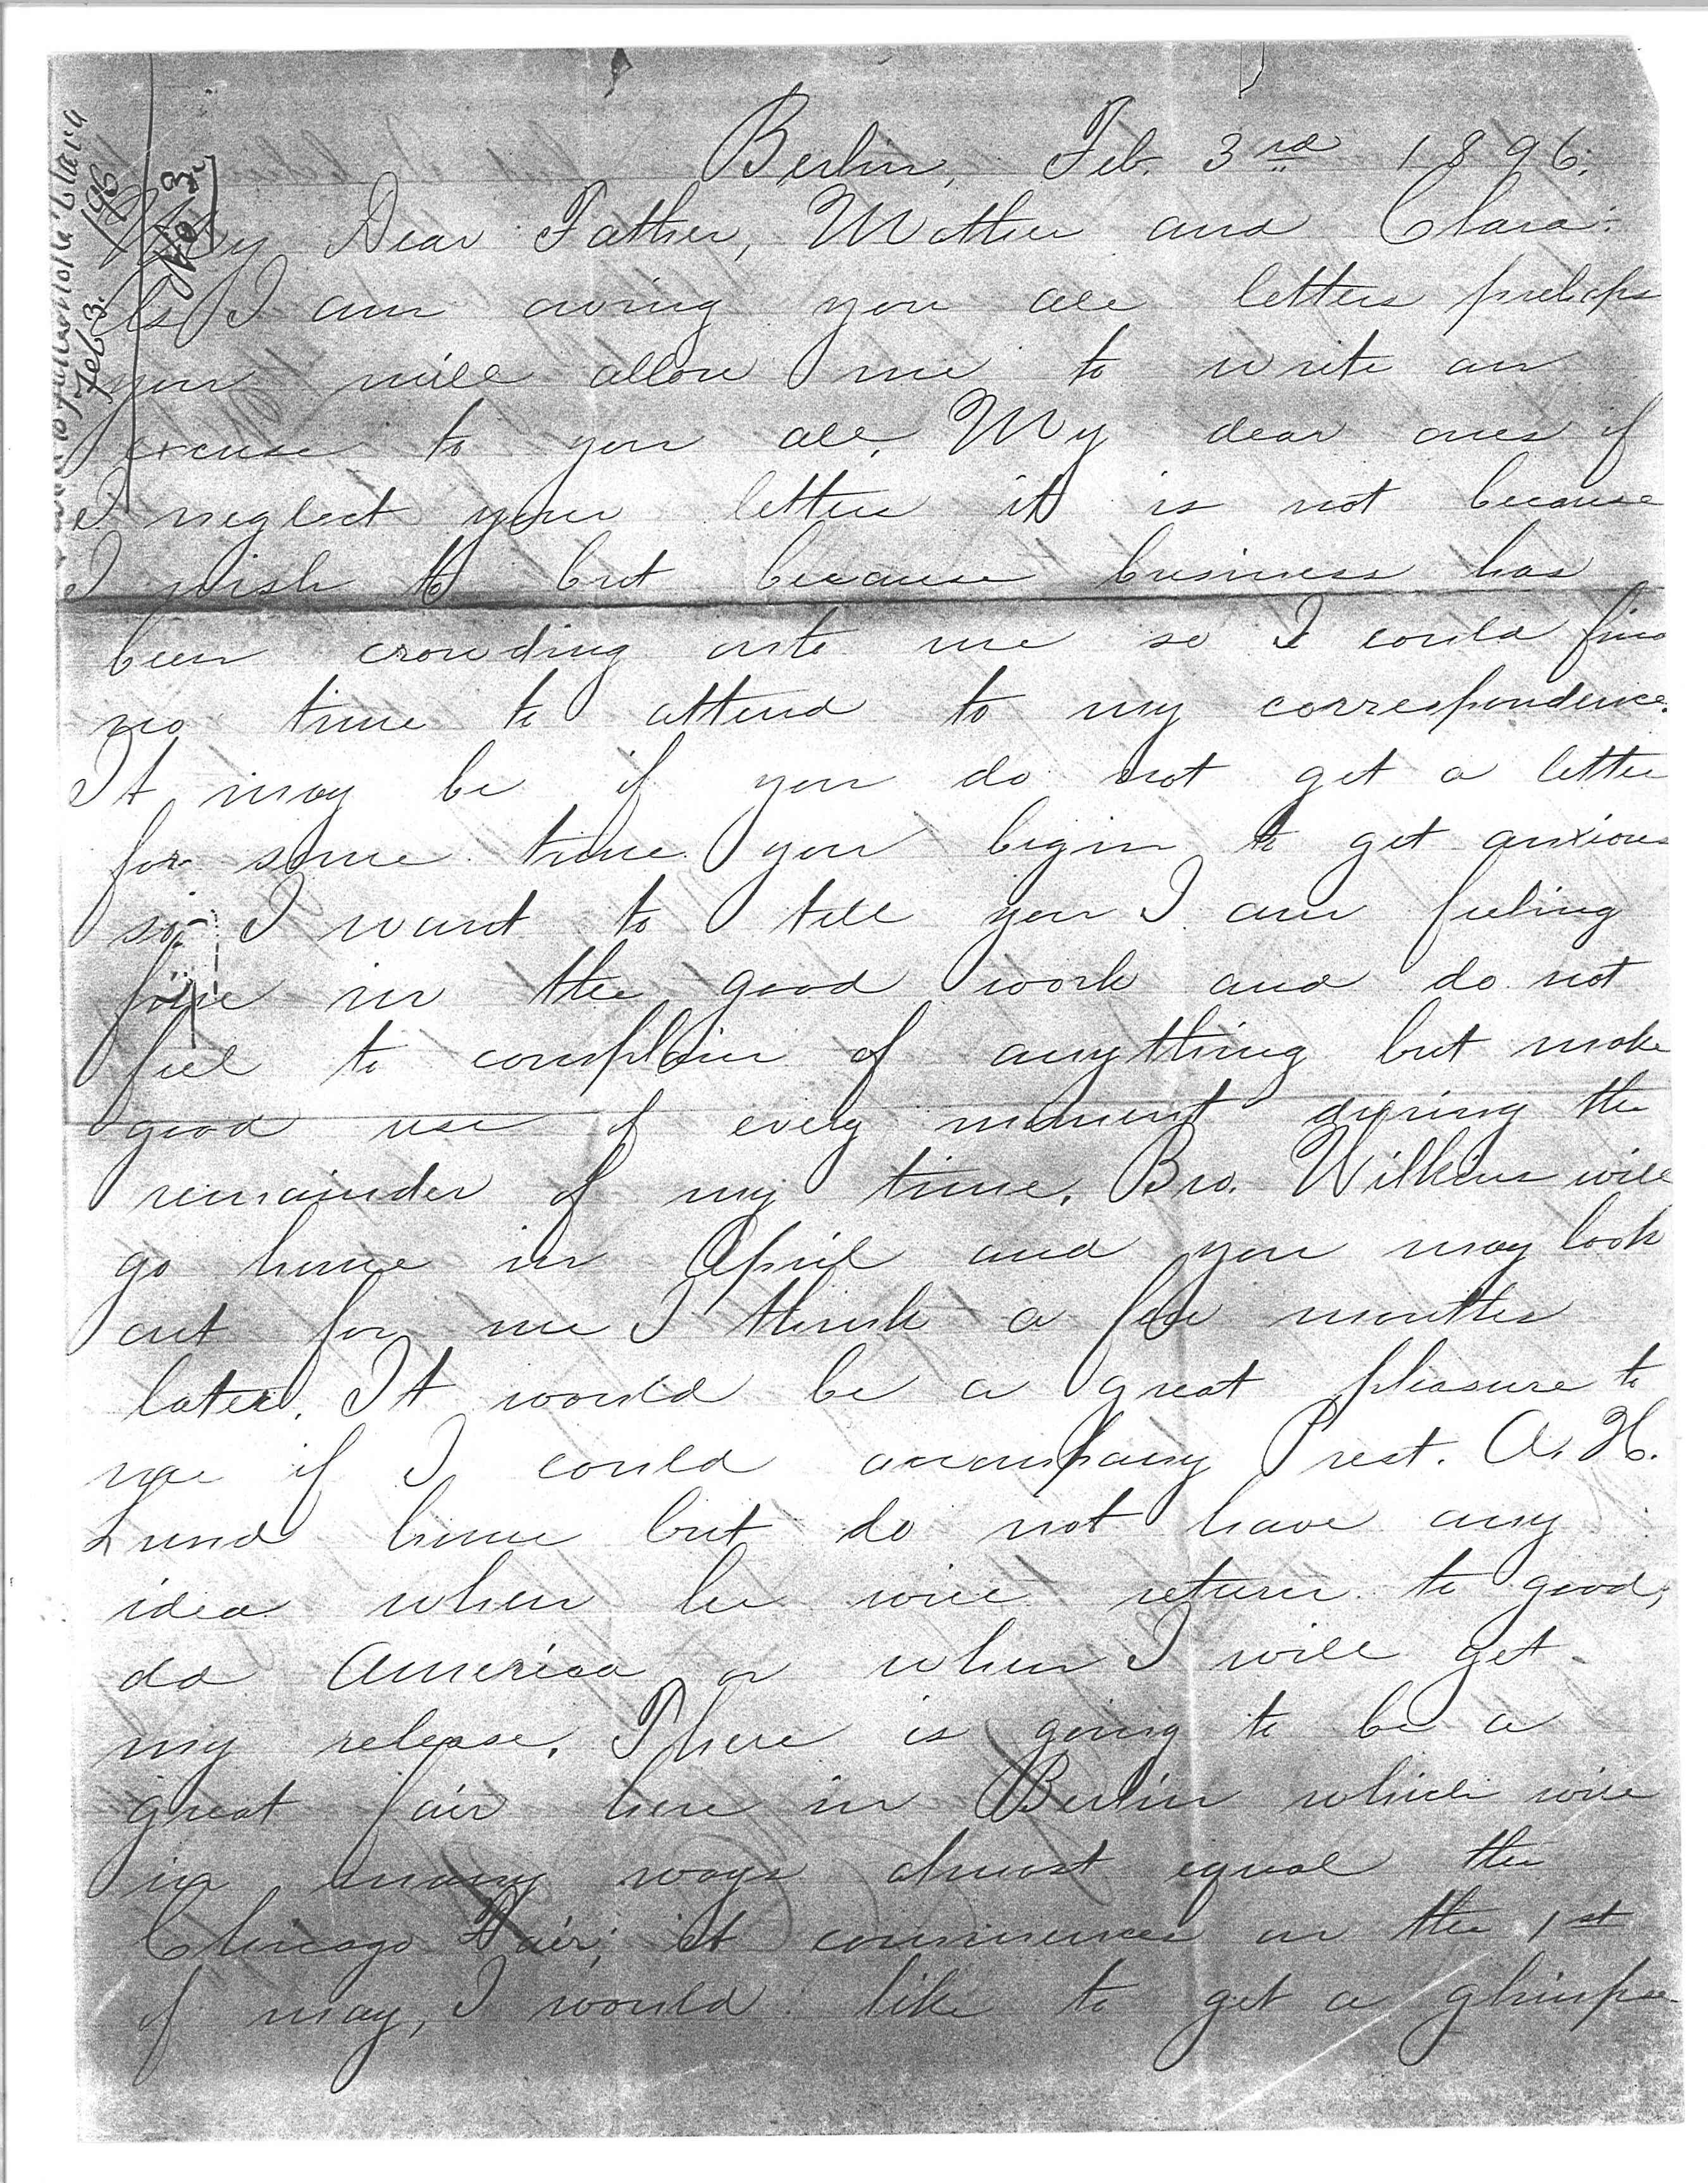 Berlin, Feb. 3rd 1896.
My Dear Father, Mother and Clara:
As I am owing you all letters perhaps
you will allow me to write an
excuse to you all. My dear ones if
I neglect your letters it is not because
I wish to but because business has
been crowding onto me so I could find
no time to attend to my correspondence.
It may be if you do not get a letter
for some time you begin to get anxious
so I want to tell you I am feeling
fine in the good work and do not
feel to complain of anything but make
good use of every moment during the
remainder of my time. Bro. Wilkins will
go home in April and you may look
out for me I think a few months
later. It would be a great pleasure to
me if I could accompany Prest. A. H.
Lund home but do not have any
idea when he will return to good,
old America or when I will get
my release. There is going to be a
great fair here in Berlin which will
in many ways almost equal the
Chicago Fair; it commences on the 1st
of may, I would like to get a glimpse
Clara
Feb 3. 1896
No 3.